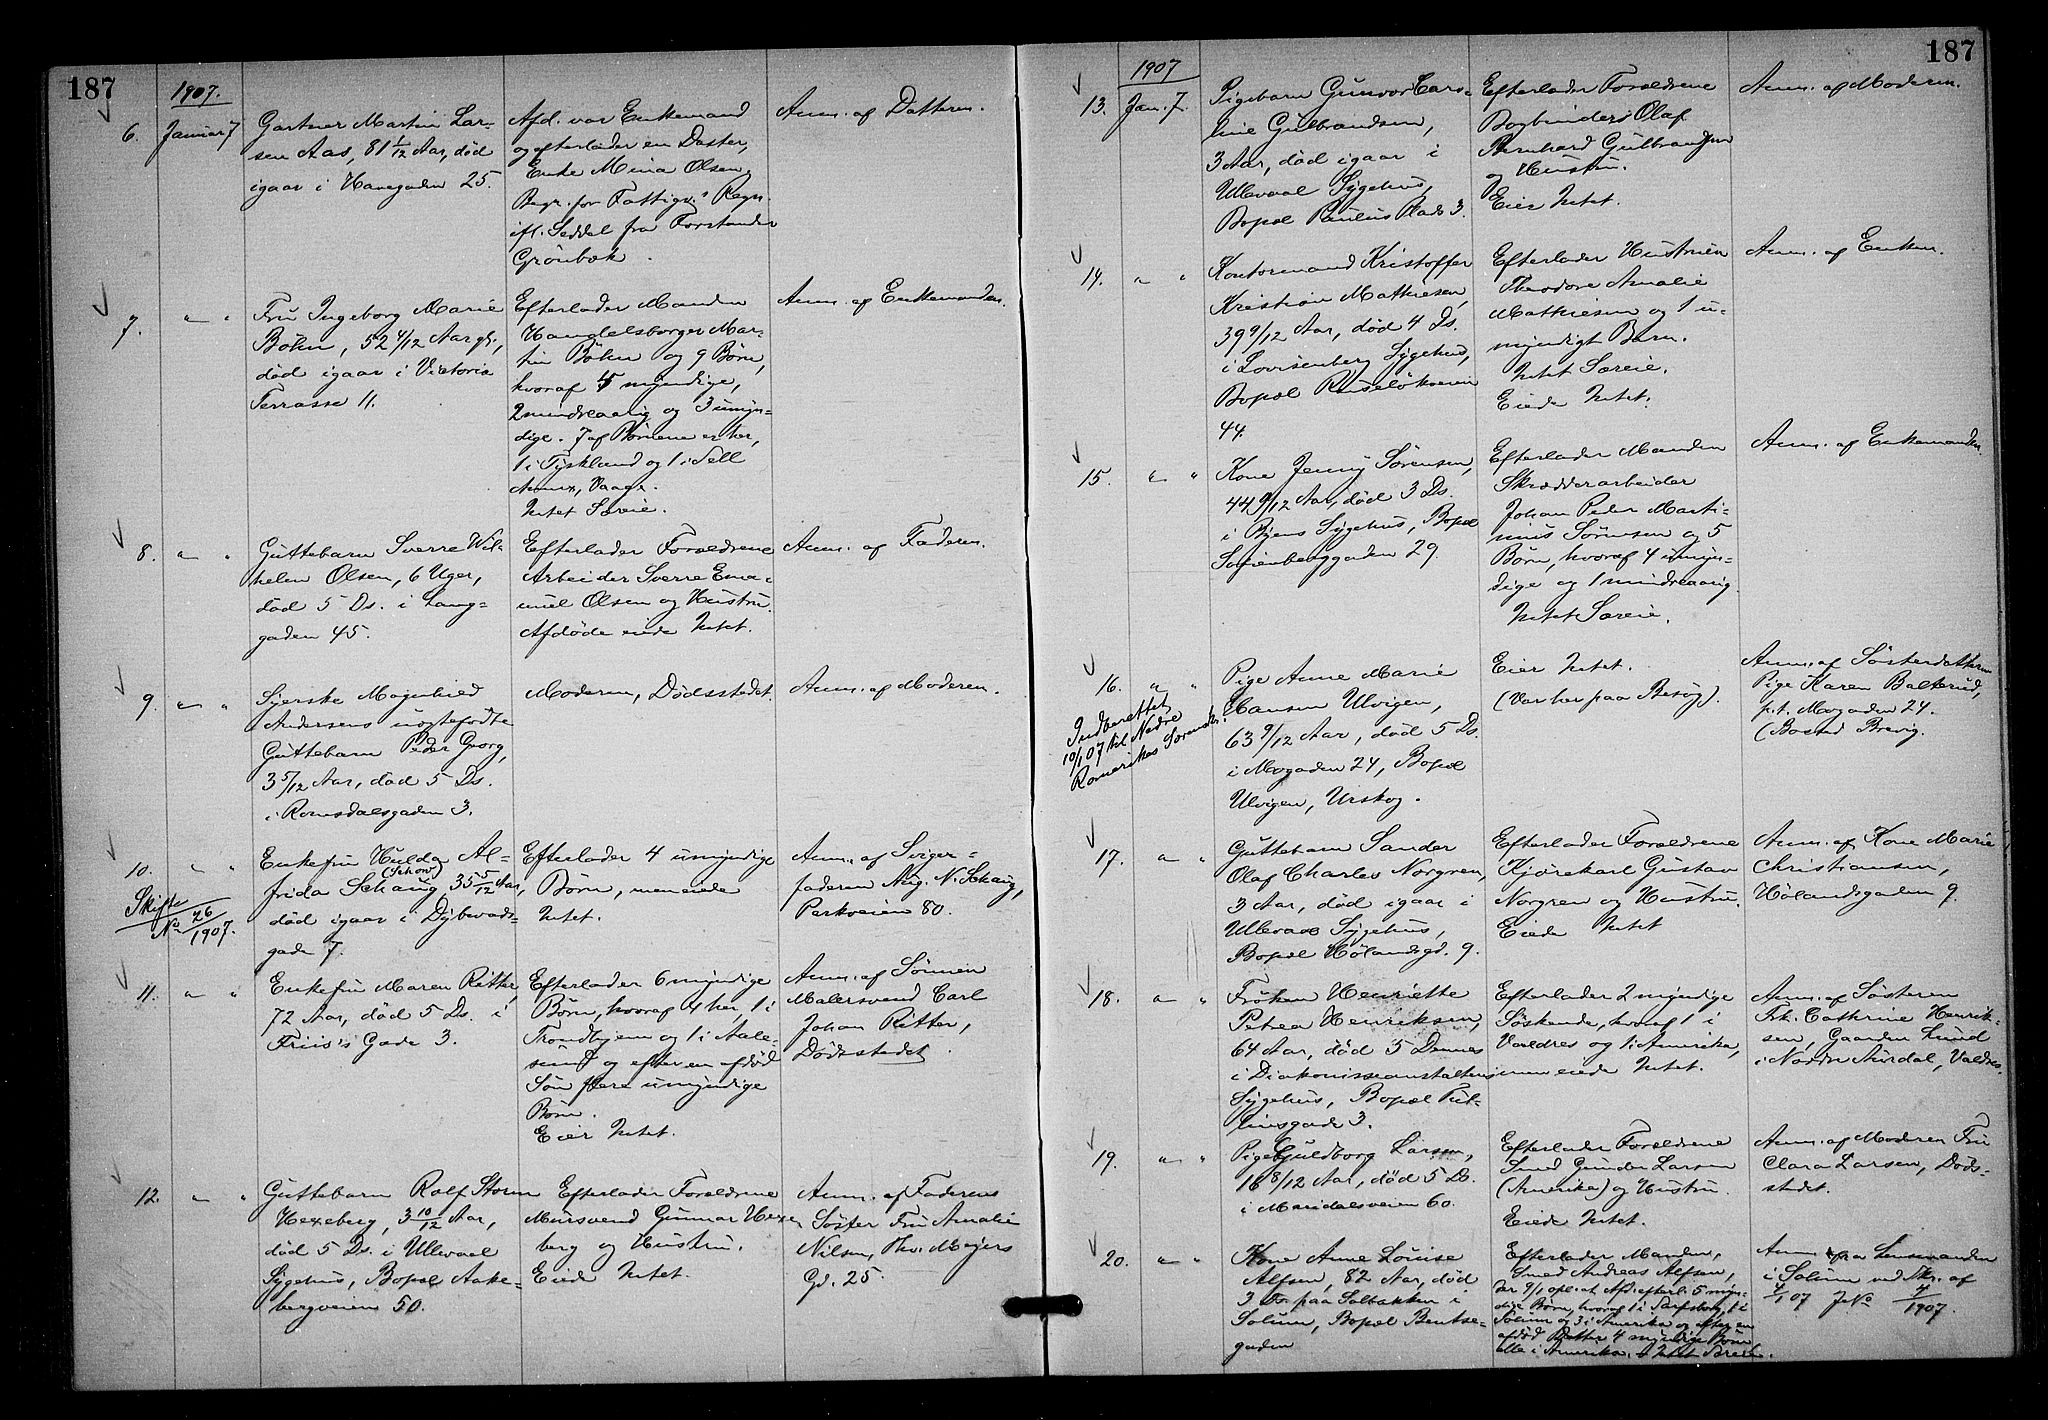 187
1907.
6. Januar 7
Gartner Martin Lar-
sen Aas, 81 1/12 Aar, død
igaar i Havegaden 25.
Afd. var Enkemand
og efterlader en Datter,
Enke Mina Olsen.
Begr. for Fattigv.s Regn.
ifl. Seddel fra Forstander
Grönbæk.
Anm. af Datteren.
7. " "
Fru Ingeborg Marie
Bøhn, 52 4/12 Aar gl.,
død igaar i Victoria
Terrasse 11.
Efterlader Manden
Handelsborger Mar-
tin Bøhn og 9 Børn,
hvoraf 4 myndige,
2 mindreaarig og 3 umyn-
dige. 7 af Børnene er her,
1 i Tyskland og 1 i Sell
Annex, Vaage.
Intet Særeie.
Anm. af Enkemanden.
8. " "
Guttebarn Sverre Wil-
helm Olsen, 6 Uger,
død 5 Ds. i Lang-
gaden 45.
Efterlader Forældrene
Arbeider Sverre Ema-
nuel Olsen og Hustru.
Afdøde eiede Intet.
Anm. af Faderen.
9. " "
Syerske Magnhild
Andersens uægtefødte
Guttebarn Peder Georg,
3 5/12 Aar, død 5 Ds.
i Romsdalsgaden 3.
Moderen, Dødsstedet.
Anm. af Moderen.
10. " "
Skifte
No 26/1907.
Enkefru Hulda Al-
(Schow)
frida Schaug, 35 5/12 Aar,
død igaar i Dybwads-
gade 7.
Efterlader 4 umyndige
Børn, men eiede
Intet.
Anm. af Sviger-
faderen Aug. N. Schaug,
Parkveien 80.
11. " "
Enkefru Maren Ritter,
72 Aar, død 5 Ds. i
Friis's Gade 3.
Efterlader 6 myndige
Børn, hvoraf 4 her, 1 i
Trondhjem og 1 i Aale-
sund og efter en afdød
Søn flere umyndige
Børn.
Eier Intet.
Anm. af Sønnen
Malersvend Carl
Johan Ritter,
Dødsstedet.
12. " "
Guttebarn Rolf Storm
Hexeberg, 3 10/12 Aar,
død 5 Ds. i Ullevaal
Sygehus, Bopæl Aake-
bergveien 50.
Efterlader Forældrene
Mursvend Gunnar Hexe-
berg og Hustru.
Eiede Intet.
Anm. af Faderens
Søster Fru Amalie
Nilsen, Thv. Meyers
Gd. 25.
187
1907
13. Jan. 7.
Pigebarn Gunvor Caro-
line Gulbrandsen,
3 Aar, død igaar i
Ullevaal Sygehus,
Bopæl Paulus Plads 3.
Efterlader Forældrene
Bogbinder Olaf
Bernhard Gulbrandsen
og Hustru.
Eier Intet.
Anm. af Moderen.
14. " "
Kontormand Kristoffer
Kristian Mathiesen,
39 9/12 Aar, død 4 Ds.
i Lovisenberg Sygehus,
Bopæl Ruseløkveien
44.
Efterlader Hustruen
Theodore Amalie
Mathiesen og 1 u-
myndigt Barn.
Intet Særeie.
Eiede Intet.
Anm. af Enken.
15. " "
Kone Jenny Sørensen,
44 9/12 Aar, død 3 Ds.
i Byens Sygehus, Bopæl
Sofienberggaden 29.
Efterlader Manden
Skrædderarbeider
Johan Peder Marti-
nius Sørensen og 5
Børn, hvoraf 4 umyn-
dige og 1 mindreaarig.
Intet Særeie.
Anm. af Enkemanden.
16. " "
Indberettet
10/1 07 til Nedre
Romerikes Sorenskr.
Pige Anne Marie
Hansen Ulvigen,
63 9/12 Aar, død 5 Ds.
i Mogaden 24, Bopæl
Ulvigen, Urskog.
Eier Intet.
(Var her paa Besøg).
Anm. af Søsterdatteren
Pige Karen Balterud,
p.t. Mogaden 24.
(Bosted Brevig.
17. " "
Guttebarn Sander
Olaf Charles Norgren,
3 Aar, død igaar i
Ullevaal Sygehus,
Bopæl Hølandsgd. 9.
Efterlader Forældrene
Kjørekarl Gustav
Norgren og Hustru.
Eiede Intet
Anm. af Kone Marie
Christiansen,
Hølandsgaden 9.
18. " "
Frøken Henriette
Petrea Henriksen,
64 Aar, død 5 Dennes
i Diakonisseanstaltens
Sygehus, Bopæl Tul-
linsgade 3.
Efterlader 2 myndige
Søskende, hvoraf 1 i
Valdres og 1 i Amerika,
men eiede Intet.
Anm. af Søsteren
Frk. Cathrine Henrik-
sen, Gaarden Lund
i Nordre Aurdal, Valdres.
19. " "
Pige Guldborg Larsen,
16 8/12 Aar, død 5 Ds.
i Maridalsveien 60.
Efterlader Forældrene
Smed Gunder Larsen
(Amerika) og Hustru.
Eiede Intet.
Anm. af Moderen Fru
Clara Larsen, Døds-
stedet.
20. " "
Kone Anne Louise
Alfsen, 82 Aar, død
3 paa Solbakken i
Solum, Bopæl Bentse-
gaden
Efterlader Manden,
Smed Andreas Alfsen,
der 9/1 opl. at Afd. efterl. 5 myn-
dige Børn, hvoraf 1 i Sarpsborg, 1 i
Solum og 3 i Amerika og efter en
afdød Datter 4 myndige Børn
alle i Amerika. Intet Særeie.
Anm. fra Lensmanden
i Solum ved Skr. af
4/1 07 J No 4/1907.